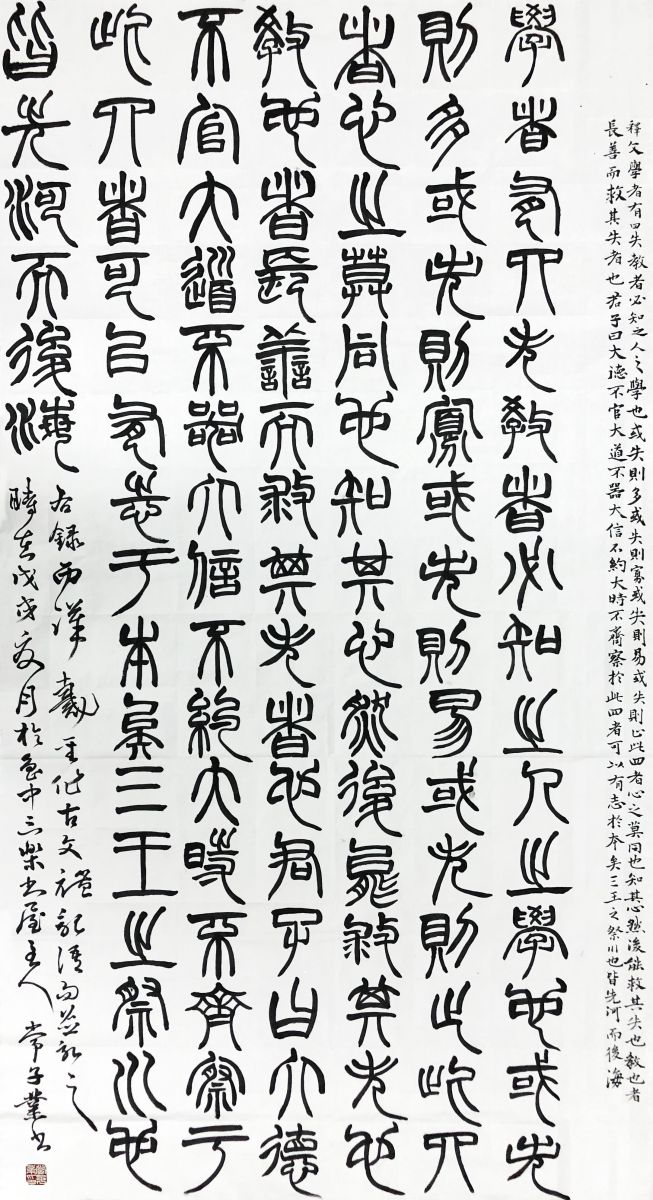 釋文學者有四失教者必知之人之學也或失則多或失則寡或失則易或失則止此四者心之莫同也知其心然後能救其失也教也者
長善而救其失者也君子曰大德不官大道不器大信不約大時不齊察於此四者可以有志於本矣三王之祭川也皆先河而後海
學者有四失教者必知之人之學也或失
則多或失則寡或失則易或失則止此四
者心之莫同也知其心然後能救其失也
教也者長善而救其失者也君子曰大德
不官大道不器大信不約大時不齊察于
此四者可以有志于本矣三王之祭川也
皆先河而後海
右錄西漢戴聖作古文禮記語句並記之
時在戊戌夏月於魯中三樂書屋主人常子業書